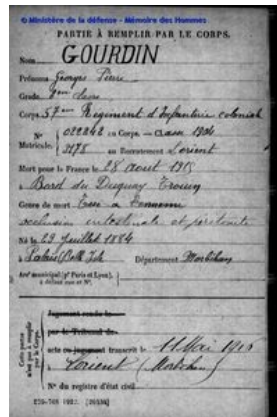 © Ministère de la défense - Mémoire des Hommes
PARTIE À REMPLIR PAR LE CORPS.
Nom GOURDIN
Prénoms Georges Pierre
Grade 2eme classe
Corps 57eme Regiment d'Infanterie coloniale
N° 022242 au Corps. — Classe 1904
Matricule. 3178 au Recrutement Lorient
Mort pour la France le 28 août 1915
à Bord du Duguay Trouin
Genre de mort
occlusion intestinale et péritonite
Né le 29 Juillet 1884
à Palais (Belle Isle Département Morbihan
Arrt municipal (pr Paris et Lyon),
à défaut rue et N°.
Cette partie
n'est pas à remplir
par le Corps.
Jugement rendu le
par le Tribunal de
acte ou jugement transcrit le 11 Mai 1916
à Lorient (Morbihan)
N° du registre d'état civil